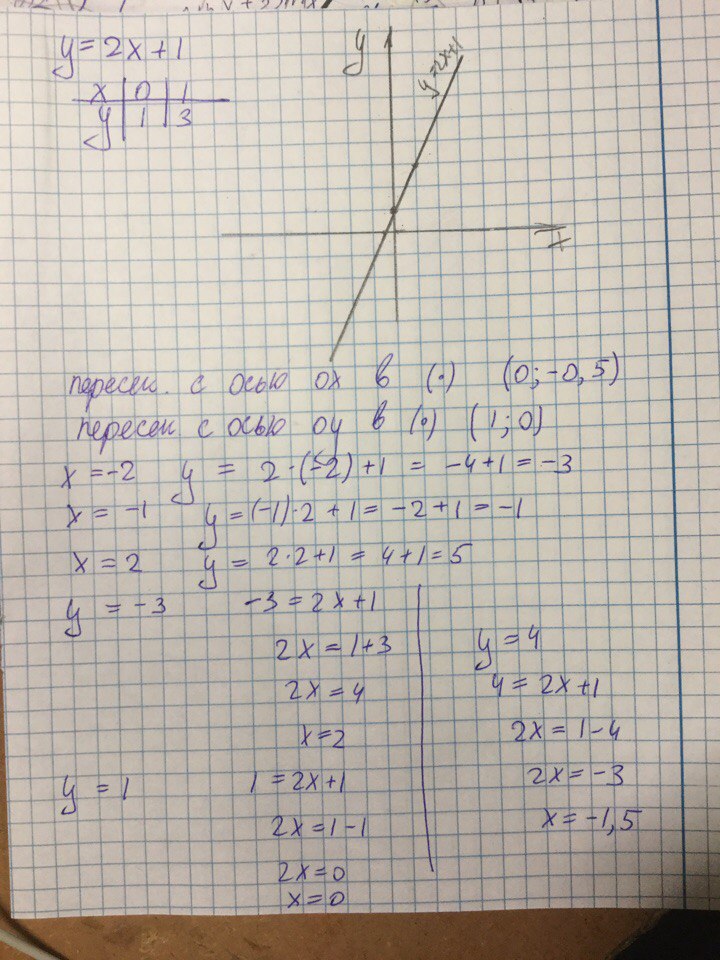 y = 2x + 1
x | 0 | 1
y | 1 | 3
y
y=2x+1
x
пересек. с осью ox в (·) (0; -0,5)
пересек с осью oy в (·) (1; 0)
x = -2 y = 2·(-2)+1 = -4+1 = -3
x = -1 y = (-1)·2 + 1 = -2+1 = -1
x = 2 y = 2·2+1 = 4+1=5
y = -3 -3 = 2x+1
2x = 1+3
2x = 4
x=2
y = 1 1 = 2x+1
2x = 1-1
2x = 0
x = 0
y = 4
4 = 2x+1
2x = 1-4
2x = -3
x = -1,5